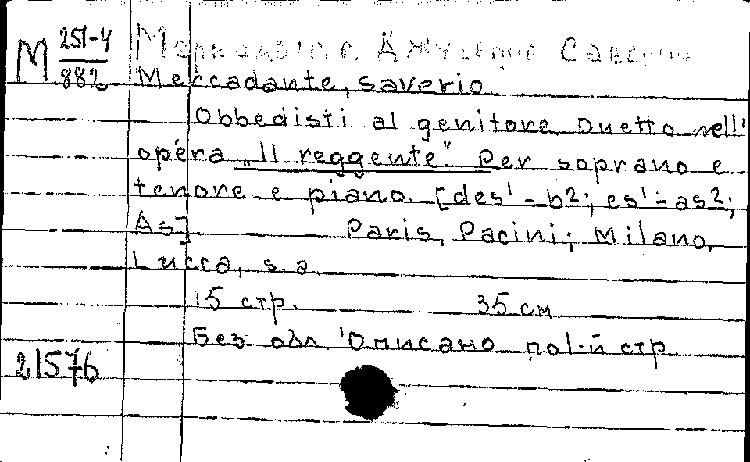 М 251-4/882
Меркаданте, Джузеппе Саверио
Mercadante, Saverio.
Obbedisti al genitore. Duetto nell'
opéra „Il reggente". Per soprano e
tenore e piano. [des¹-b²; es¹-as²;
As]. Paris, Pacini; Milano,
Lucca, s.a.
15 стр. 35 см
Без обл. Описано по 1-й стр.
21576